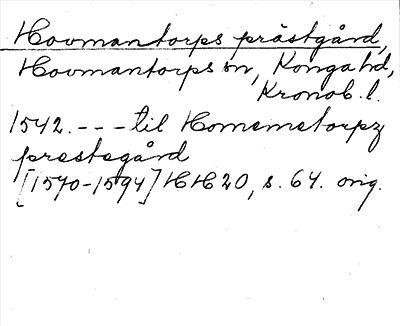 Hovmantorps prästgård,
Hovmantorps sn, Konga hd,
Kronob. l.
1542. - - - til Homemetorpz
prestegård
[1570-1594] HH 20, s. 64. orig.